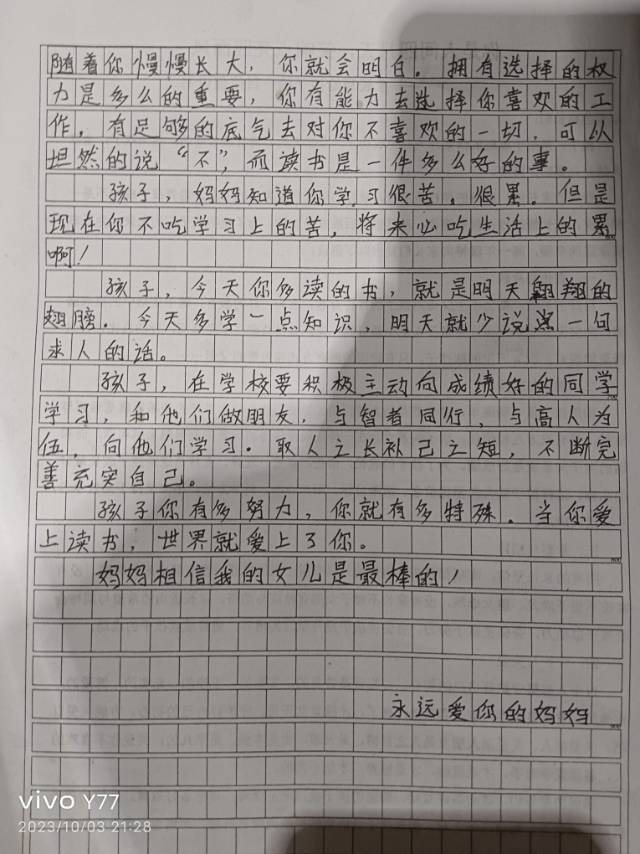 随着你慢慢长大，你就会明白。拥有选择的权
力是多么的重要，你有能力去选择你喜欢的工
作，有足够的底气去对你不喜欢的一切，可以
坦然的说“不”，而读书是一件多么好的事。
孩子，妈妈知道你学习很苦，很累，但是
现在你不吃学习上的苦，将来必吃生活上的累
啊！
孩子，今天你多读的书，就是明天翱翔的
翅膀。今天多学一点知识，明天就少说一句
求人的话。
孩子，在学校要积极主动向成绩好的同学
学习，和他们做朋友，与智者同行，与高人为
伍，向他们学习。取人之长补己之短，不断完
善充实自己。
孩子你有多努力，你就有多特殊。当你爱
上读书，世界就爱上了你。
妈妈相信我的女儿是最棒的！
永远爱你的妈妈
vivo Y77
2023/10/03 21:28